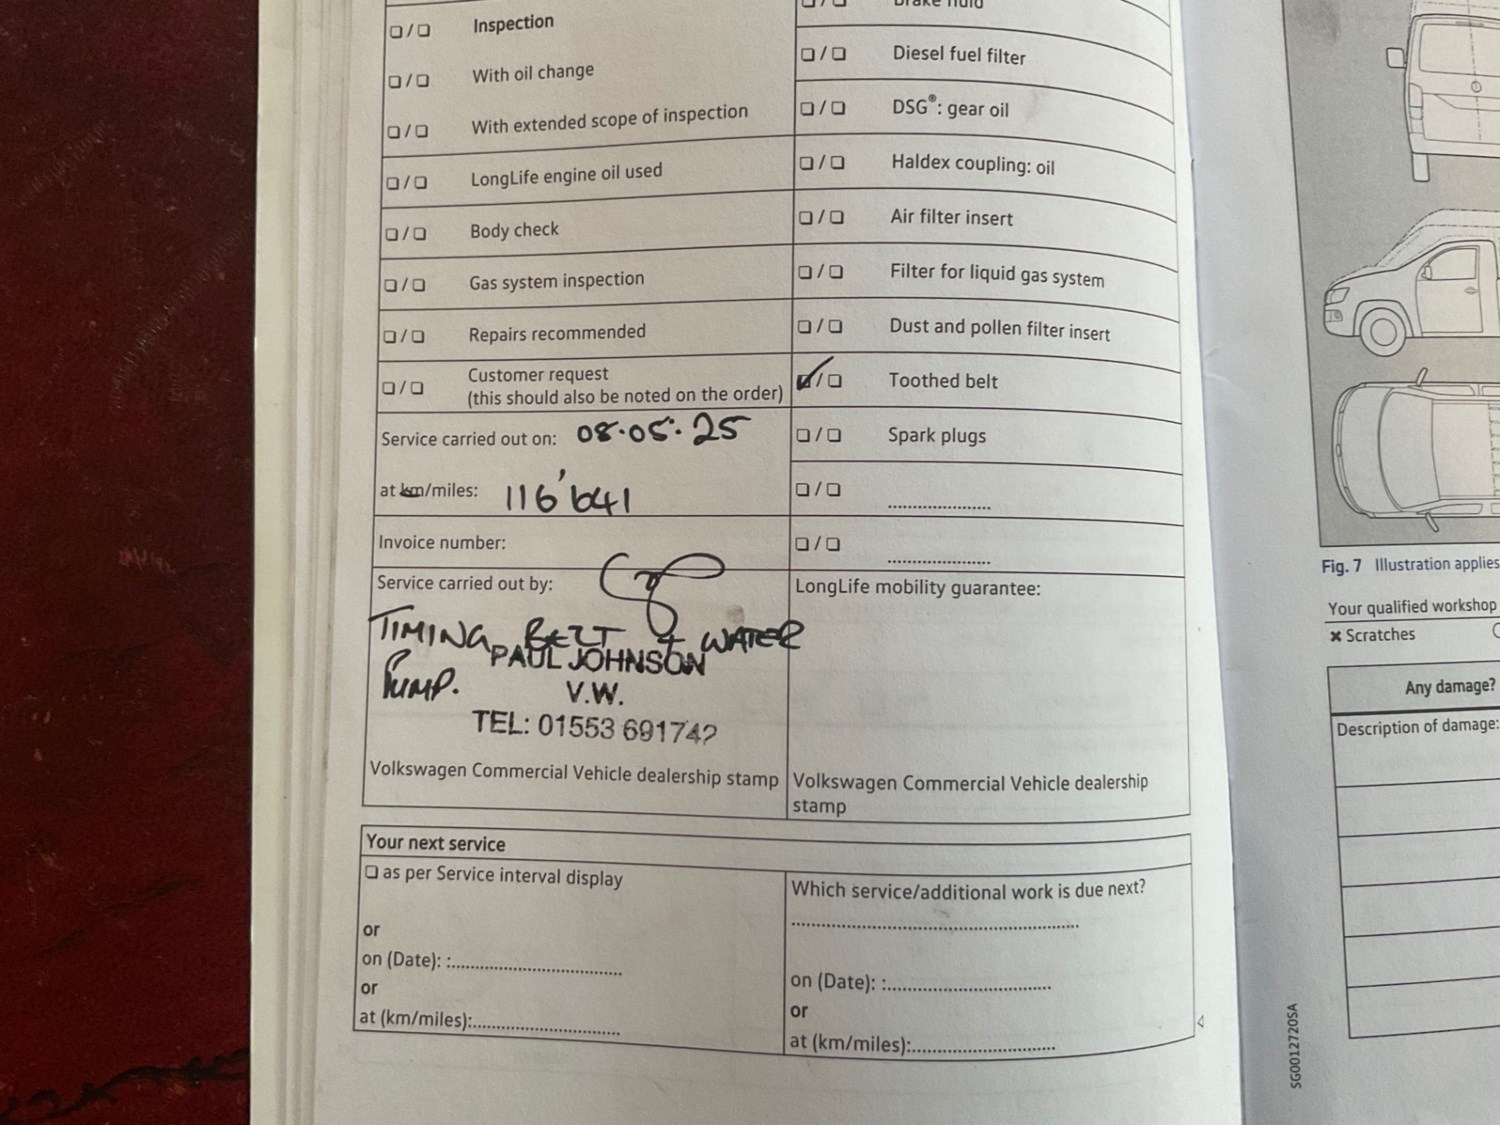 ❏/❏ Inspection
❏/❏ With oil change
❏/❏ With extended scope of inspection
❏/❏ LongLife engine oil used
❏/❏ Body check
❏/❏ Gas system inspection
❏/❏ Repairs recommended
❏/❏ Customer request
(this should also be noted on the order)
Service carried out on: 08.05.25
at km/miles: 116'641
Invoice number:
Service carried out by:
TIMING BELT & WATER
PUMP.
PAUL JOHNSON
V.W.
TEL: 01553 691742
Volkswagen Commercial Vehicle dealership stamp
❏/❏ Brake fluid
❏/❏ Diesel fuel filter
❏/❏ DSG®: gear oil
❏/❏ Haldex coupling: oil
❏/❏ Air filter insert
❏/❏ Filter for liquid gas system
❏/❏ Dust and pollen filter insert
✓/❏ Toothed belt
❏/❏ Spark plugs
❏/❏ ......................
❏/❏ ......................
LongLife mobility guarantee:
Volkswagen Commercial Vehicle dealership
stamp
Your next service
❏ as per Service interval display
or
on (Date): :...................................
or
at (km/miles):..............................
Which service/additional work is due next?
...........................................................
on (Date): :.................................
or
at (km/miles):.............................
Fig. 7 Illustration applies
Your qualified workshop
✖ Scratches
Any damage?
Description of damage:
SG0012720SA